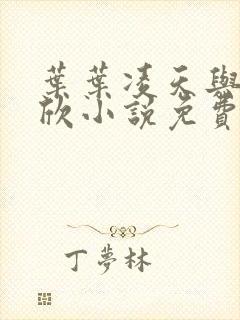 葉葉凌天與
欣小說免費
丁夢林